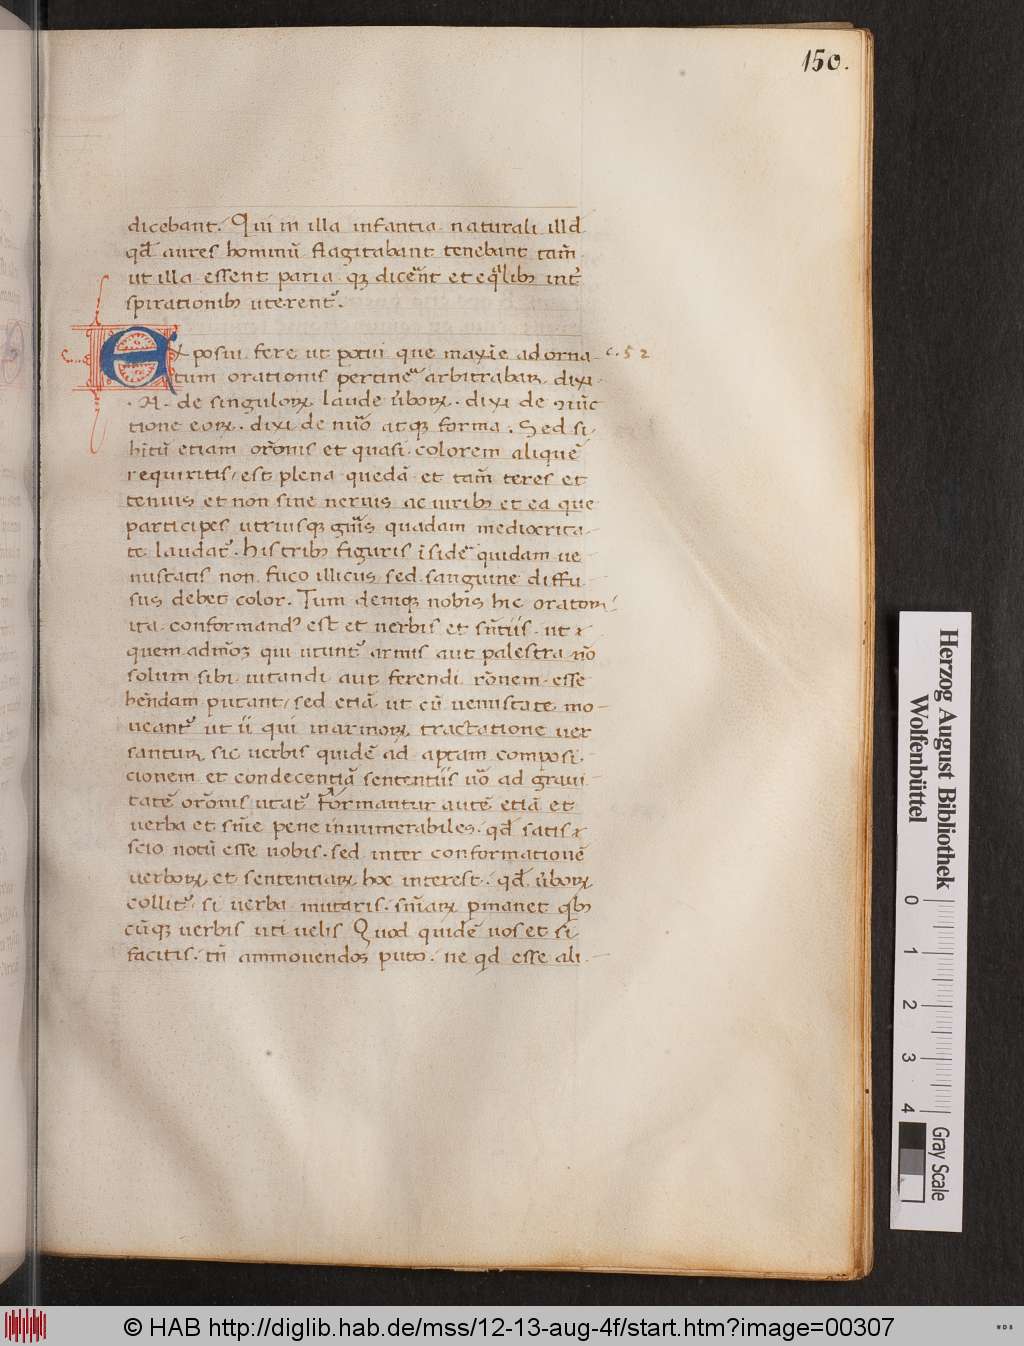 150.
dicebant. Qui in illa infantia naturali illd
qd̄ aures hominū flagitabant tenebant tam̄
ut illa essent paria qꝫ dicer̄nt et eq̄libꝫ int᷒
spirationibꝫ uterent᷒.
Ex posui fere ut potui que maxīe ad orna- c. 52
tum orationis pertinē arbitrabar. dixi
.N. de singulorꝝ laude ūborꝝ. dixi de ɔiūc
tione eorꝝ. dixi de nūo atqꝫ forma. Sed si
hitū etiam or̄onis et quasi colorem aliquē
requiritis/ est plena quedā et tam̄ teres et
tenuis et non sine neruis ac uiribꝫ et ea que
particeps utriusqꝫ gn̄is quadam mediocrita-
te laudat᷒. His tribꝫ figuris īsidē quidam ue
nustatis non fuco illicus sed sanguine diffu
sus debet color. Tum deniqꝫ nobis hic orator
ita conformandꝰ est et uerbis et sn̄tiis. ut
quem admōꝫ qui utunt᷒ armis aut palestra nō
solum sibi uitandi aut ferendi rōnem esse
hēndam putant/ sed etiā ut cū uenustate mo-
ueant᷒ ut ii qui in armorꝝ tractatione uer
santur, sic uerbis quidē ad aptam composi-
cionem et condecentiā sententiis uō ad graui-
tatē or̄onis utat᷒ Formantur autē etiā et
uerba et sn̄ie pene innumerabiles. qd̄ satis
scio notū esse uobis. sed inter conformationē
uerborꝝ et sententiarꝝ hoc interest. qd̄ ūborꝝ
collit᷒ si uerba mutaris. sn̄iarꝝ ꝑmanet qⁱbꝫ
cūqꝫ uerbis uti uelis Quod quidē uos et si
facitis. tn̄ ammouendos puto. ne qd esse ali-
Herzog August Bibliothek
Wolfenbüttel
0 1 2 3 4
Gray Scale
© HAB http://diglib.hab.de/mss/12-13-aug-4f/start.htm?image=00307